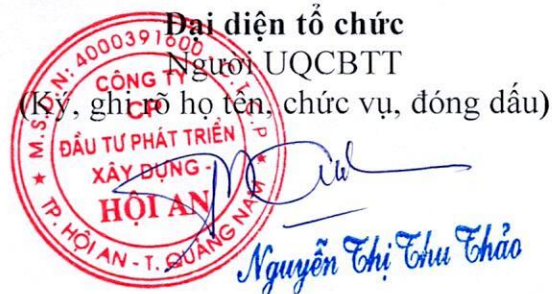 Đại diện tổ chức
Người UQCBTT
(Ký, ghi rõ họ tên, chức vụ, đóng dấu)
M.S.D.N: 4000391600 - C.T.C.P
CÔNG TY
CP
ĐẦU TƯ PHÁT TRIỂN
XÂY DỰNG -
HỘI AN
TP. HỘI AN - T. QUẢNG NAM
Nguyễn Thị Thu Thảo